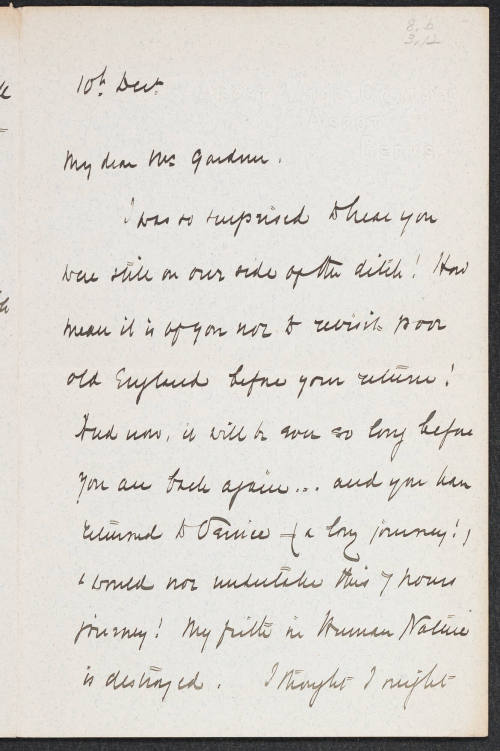 8.6
3/12
10th Decr.
My dear Mrs Gardner.
I was so surprised to hear you
were still on our side of the ditch! How
mean it is of you not to revisit poor
old England before your return!
And now, it will be ever so long before
you are back again... and you have
returned to Venice (a long journey!)
& would not undertake this 7 hours
journey! My faith in Human Nature
is destroyed. I thought I might